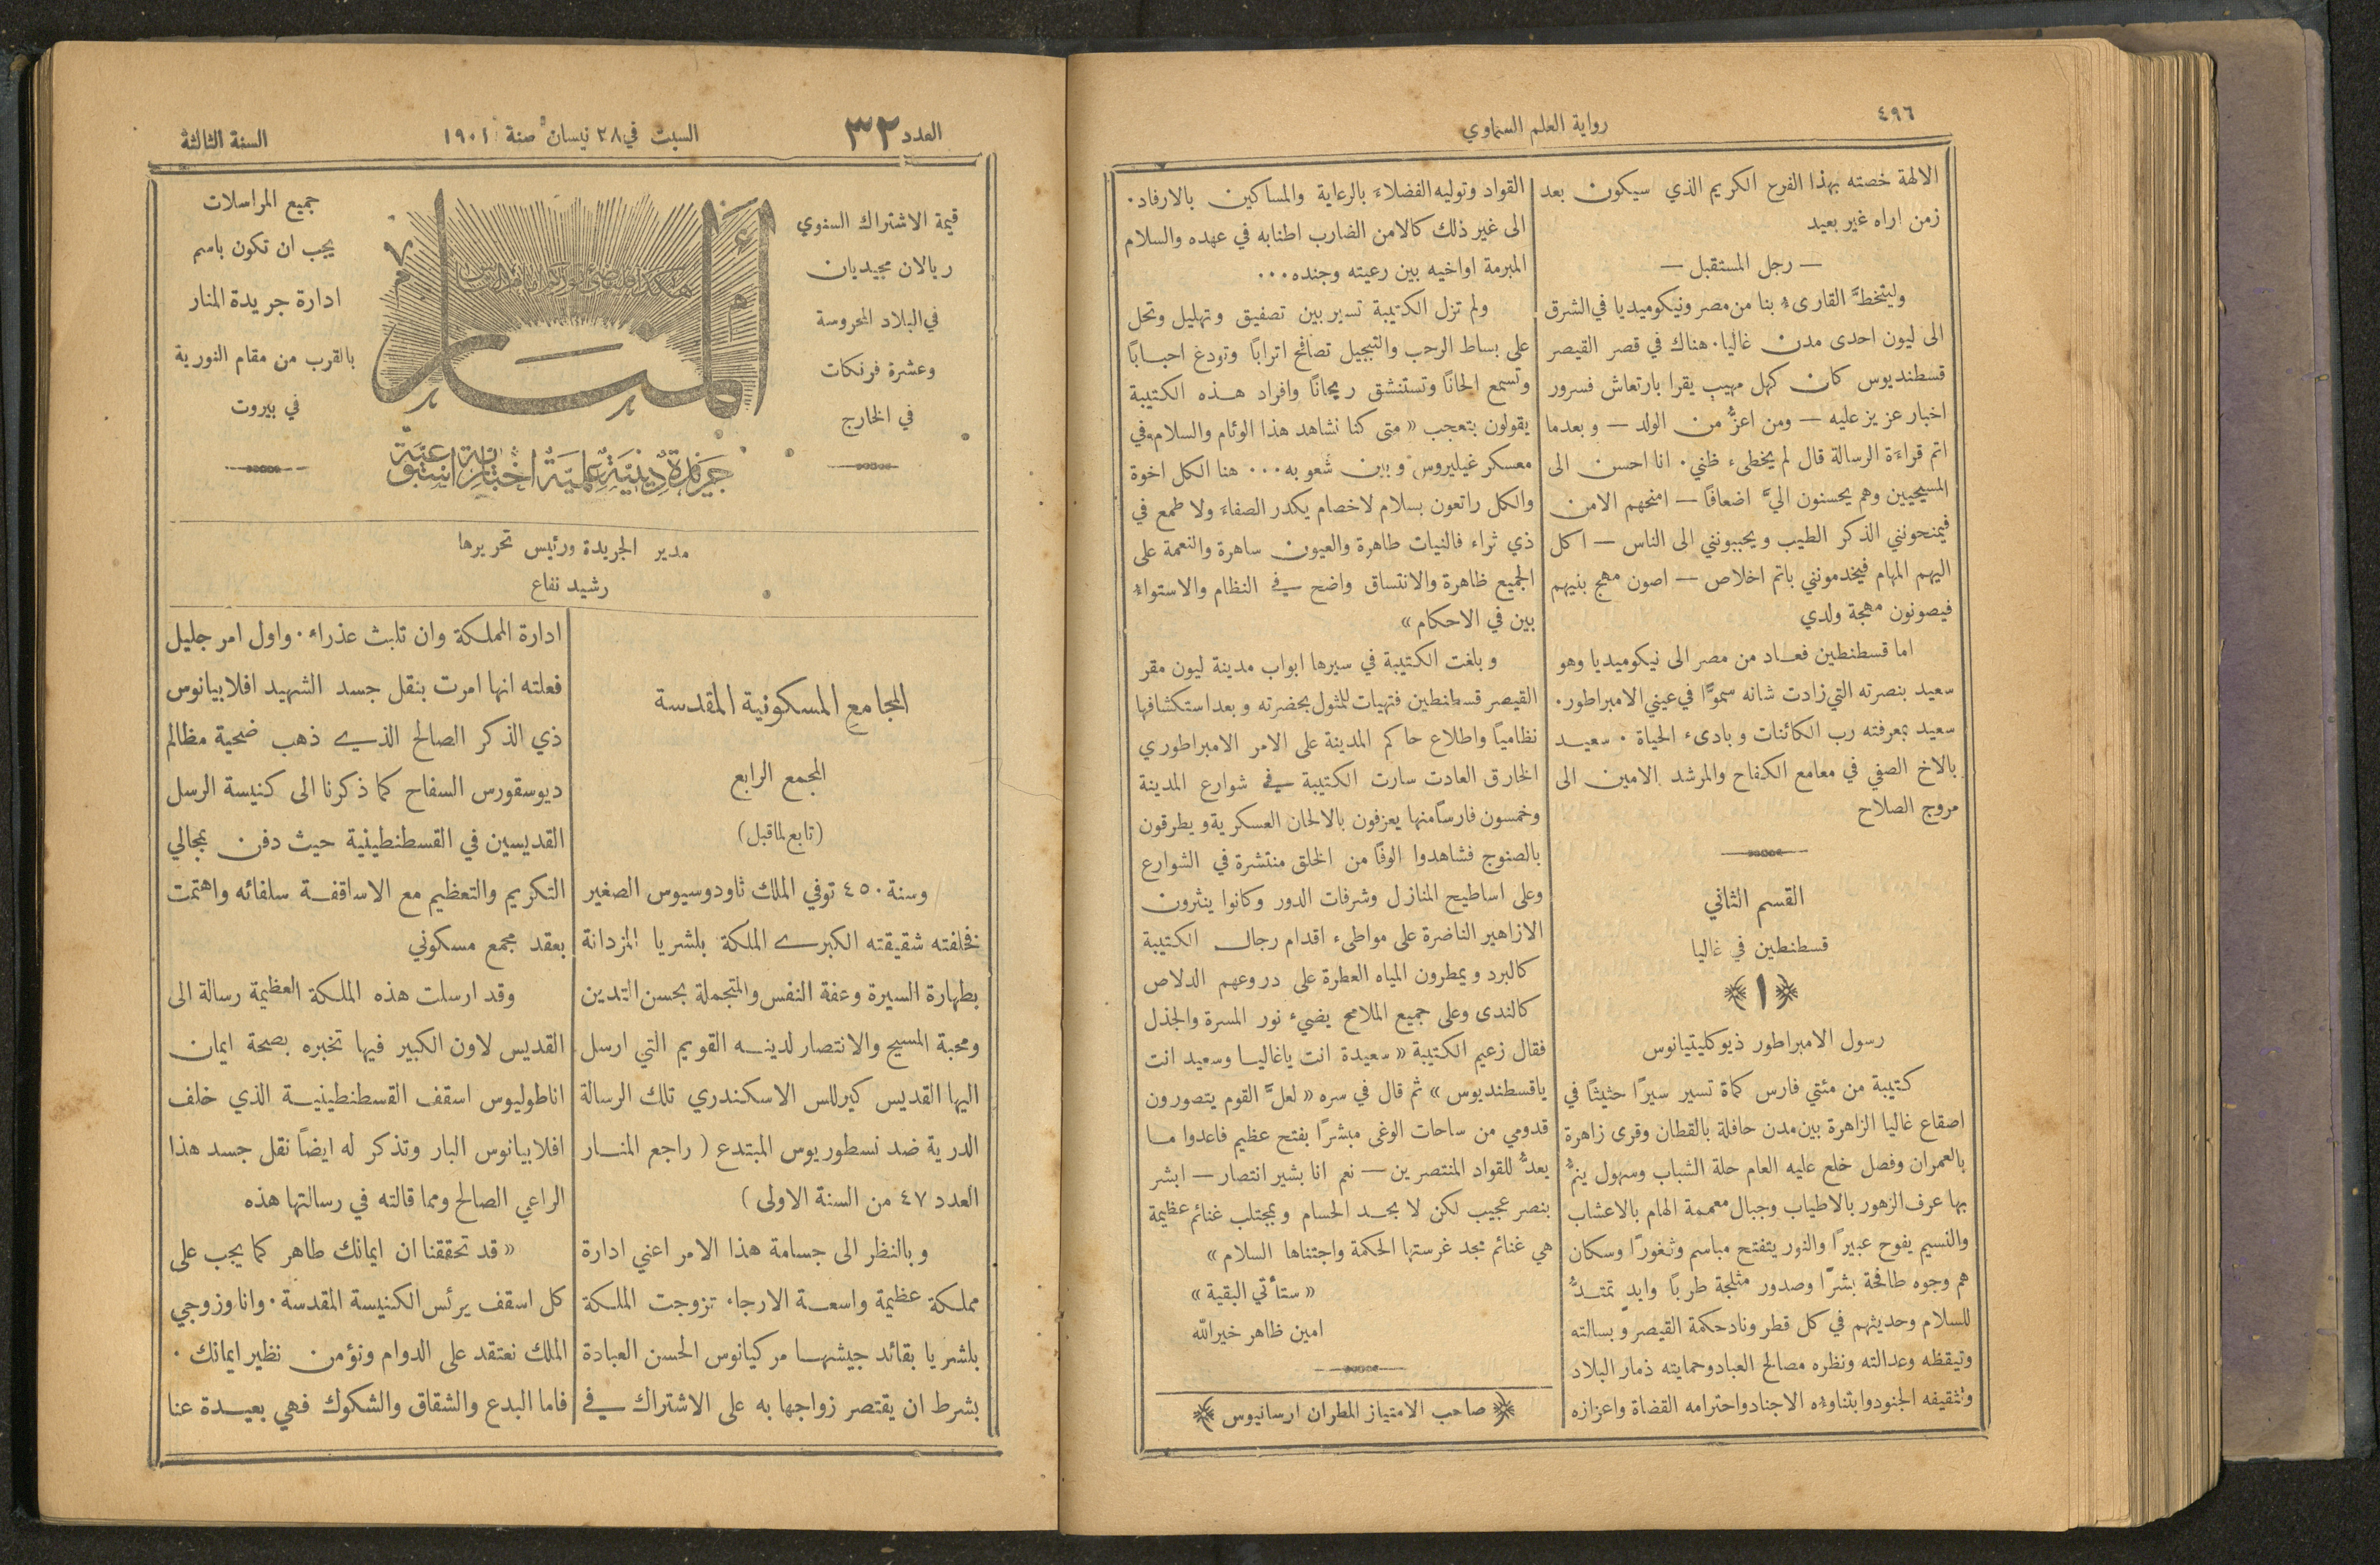 ٤٩٦
رواية العلم السماوي
الالهة خصته بهذا الفرح الكريم الذي سيكون بعد
زمن اراه غير بعيد
— رجل المستقبل —
وليتخطَّ القارىء بنا من مصر ونيكوميديا في الشرق
الى ليون احدى مدن غاليا. هناك في قصر القيصر
قسطنديوس كان كهل مهيب يقرا بارتعاش فسرور
اخبار عزيز عليه — ومن اعزُّ من الولد — وبعدما
اتم قراءة الرسالة قال لم يخطىء ظني. انا احسن الى
المسيحيين وهم يحسنون اليَّ اضعافًا — امنحهم الامن
فيمنحونني الذكر الطيب ويحببونني الى الناس — اكل
اليهم المهام فيخدمونني باتم اخلاص — اصون مهج بنيهم
فيصونون مهجة ولدي
اما قسطنطين فعاد من مصر الى نيكوميديا وهو
سعيد بنصرته التي زادت شانه سموًّا في عيني الامبراطور.
سعيد بمعرفته رب الكائنات وبادىء الحياة. سعيد
بالاخ الصفي في معامع الكفاح والمرشد الامين الى
مروج الصلاح
القسم الثاني
قسطنطين في غاليا
﴿ ١ ﴾
رسول الامبراطور ذيوكليتيانوس
كتيبة من مئتي فارس كماة تسير سيرًا حثيثًا في
اصقاع غاليا الزاهرة بين مدن حافلة بالقطان وقرى زاهرة
بالعمران وفصل خلع عليه العام حلة الشباب وسهول ينمُّ
بها عرف الزهور بالاطياب وجبال معممة الهام بالاعشاب
والنسيم يفوح عبيرًا والنور يتفتح مباسم وثغورًا وسكان
هم وجوه طافحة بشرًا وصدور مثلجة طربًا وايدٍ تمتدُّ
للسلام وحديثهم في كل قطر وناد حكمة القيصر وبسالته
وتيقظه وعدالته ونظره مصالح العباد وحمايته ذمار البلاد
وتثقيفه الجنود وابتناوءه الاجناد واحترامه القضاة واعزازه
القواد وتوليه الفضلاء بالرعاية والمساكين بالارفاد.
الى غير ذلك كالامن الضارب اطنابه في عهده والسلام
المبرمة اواخيه بين رعيته وجنده...
ولم تزل الكتيبة تسير بين تصفيق وتهليل وتحل
على بساط الرحب والتبجيل تصافح اترابًا وتودع احبابًا
وتسمع الحانًا وتستنشق ريحانًا وافراد هذه الكتيبة
يقولون بتعجب « متى كنا نشاهد هذا الوئام والسلام في
معسكر غيليروس وبين شعوبه... هنا الكل اخوة
والكل راتعون بسلام لا خصام يكدر الصفاء ولا طمع في
ذي ثراء فالنيات طاهرة والعيون ساهرة والنعمة على
الجميع ظاهرة والانتساق واضح في النظام والاستواء
بين في الاحكام »
وبلغت الكتيبة في سيرها ابواب مدينة ليون مقر
القيصر قسطنطين فتهيات للمثول بحضرته وبعد استكشافها
نظاميًا واطلاع حاكم المدينة على الامر الامبراطوري
الخارق العادت سارت الكتيبة في شوارع المدينة
وخمسون فارسًا منها يعزفون بالالحان العسكرية ويطرقون
بالصنوج فشاهدوا الوفًا من الخلق منتشرة في الشوارع
وعلى اساطيح المنازل وشرفات الدور وكانوا ينثرون
الازاهير الناضرة على مواطىء اقدام رجال الكتيبة
كالبرد ويمطرون المياه العطرة على دروعهم الدلاص
كالندى وعلى جميع الملامح يضيء نور المسرة والجذل
فقال زعيم الكتيبة « سعيدة انت ياغاليا وسعيد انت
ياقسطنديوس » ثم قال في سره « لعلَّ القوم يتصورون
قدومي من ساحات الوغى مبشرًا بفتح عظيم فاعدوا ما
يعدُّ للقواد المنتصرين — نعم انا بشير انتصار — ابشر
بنصر عجيب لكن لا بحد الحسام وبمجتلب غنائم عظيمة
هي غنائم مجد غرستها الحكمة واجتناها السلام »
« ستأتي البقية »
امين ظاهر خيرالله
﴿ صاحب الامتياز المطران ارسانيوس ﴾
العدد ٣٢
السبت في ٢٨ نيسان سنة ١٩٠١
السنة الثالثة
قيمة الاشتراك السنوي
ريالان مجيديان
في البلاد المحروسة
وعشرة فرنكات
في الخارج
المنار
جريدة دينية علمية اخبارية اسبوعية
جميع المراسلات
يجب ان تكون باسم
ادارة جريدة المنار
بالقرب من مقام النورية
في بيروت
مدير الجريدة ورئيس تحريرها
رشيد نفاع
المجامع المسكونية المقدسة
المجمع الرابع
(تابع لماقبل)
وسنة ٤٥٠ توفي الملك ثاودوسيوس الصغير
فخلفته شقيقته الكبرى الملكة بلشريا المزدانة
بطهارة السيرة وعفة النفس والمتجملة بحسن التدين
ومحبة المسيح والانتصار لدينه القويم التي ارسل
اليها القديس كيرللس الاسكندري تلك الرسالة
الدرية ضد نسطوريوس المبتدع ( راجع المنار
العدد ٤٧ من السنة الاولى )
وبالنظر الى جسامة هذا الامر اعني ادارة
مملكة عظيمة واسعة الارجاء تزوجت الملكة
بلشريا بقائد جيشها مركيانوس الحسن العبادة
بشرط ان يقتصر زواجها به على الاشتراك في
ادارة المملكة وان تلبث عذراء. واول امر جليل
فعلته انها امرت بنقل جسد الشهيد افلابيانوس
ذي الذكر الصالح الذي ذهب ضحية مظالم
ديوسقورس السفاح كما ذكرنا الى كنيسة الرسل
القديسين في القسطنطينية حيث دفن بمجالي
التكريم والتعظيم مع الاساقفة سلفائه واهتمت
بعقد مجمع مسكوني
وقد ارسلت هذه الملكة العظيمة رسالة الى
القديس لاون الكبير فيها تخبره بصحة ايمان
اناطوليوس اسقف القسطنطينية الذي خلف
افلابيانوس البار وتذكر له ايضًا نقل جسد هذا
الراعي الصالح ومما قالته في رسالتها هذه
« قد تحققنا ان ايمانك طاهر كما يجب على
كل اسقف يرئس الكنيسة المقدسة. وانا وزوجي
الملك نعتقد على الدوام ونؤمن نظير ايمانك.
فاما البدع والشقاق والشكوك فهي بعيدة عنا